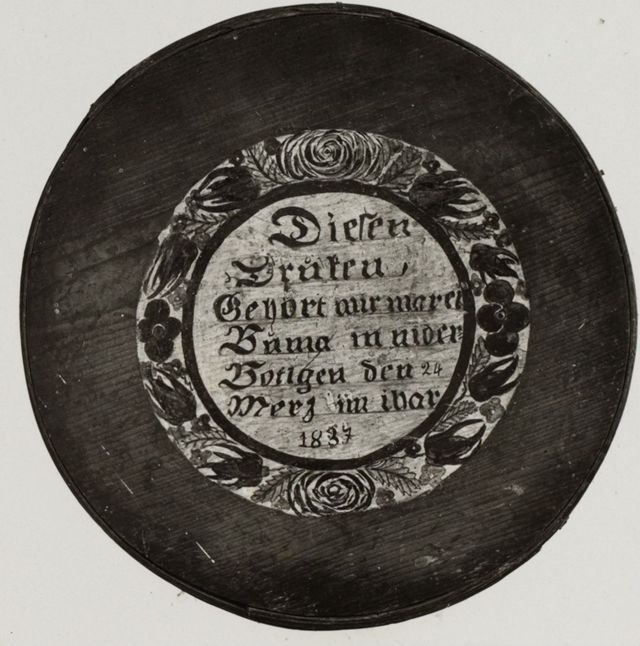 Diesen
Druken,
Gehört mir marei
Buma in nider
Botigen den 24
Merz im ihar
1837